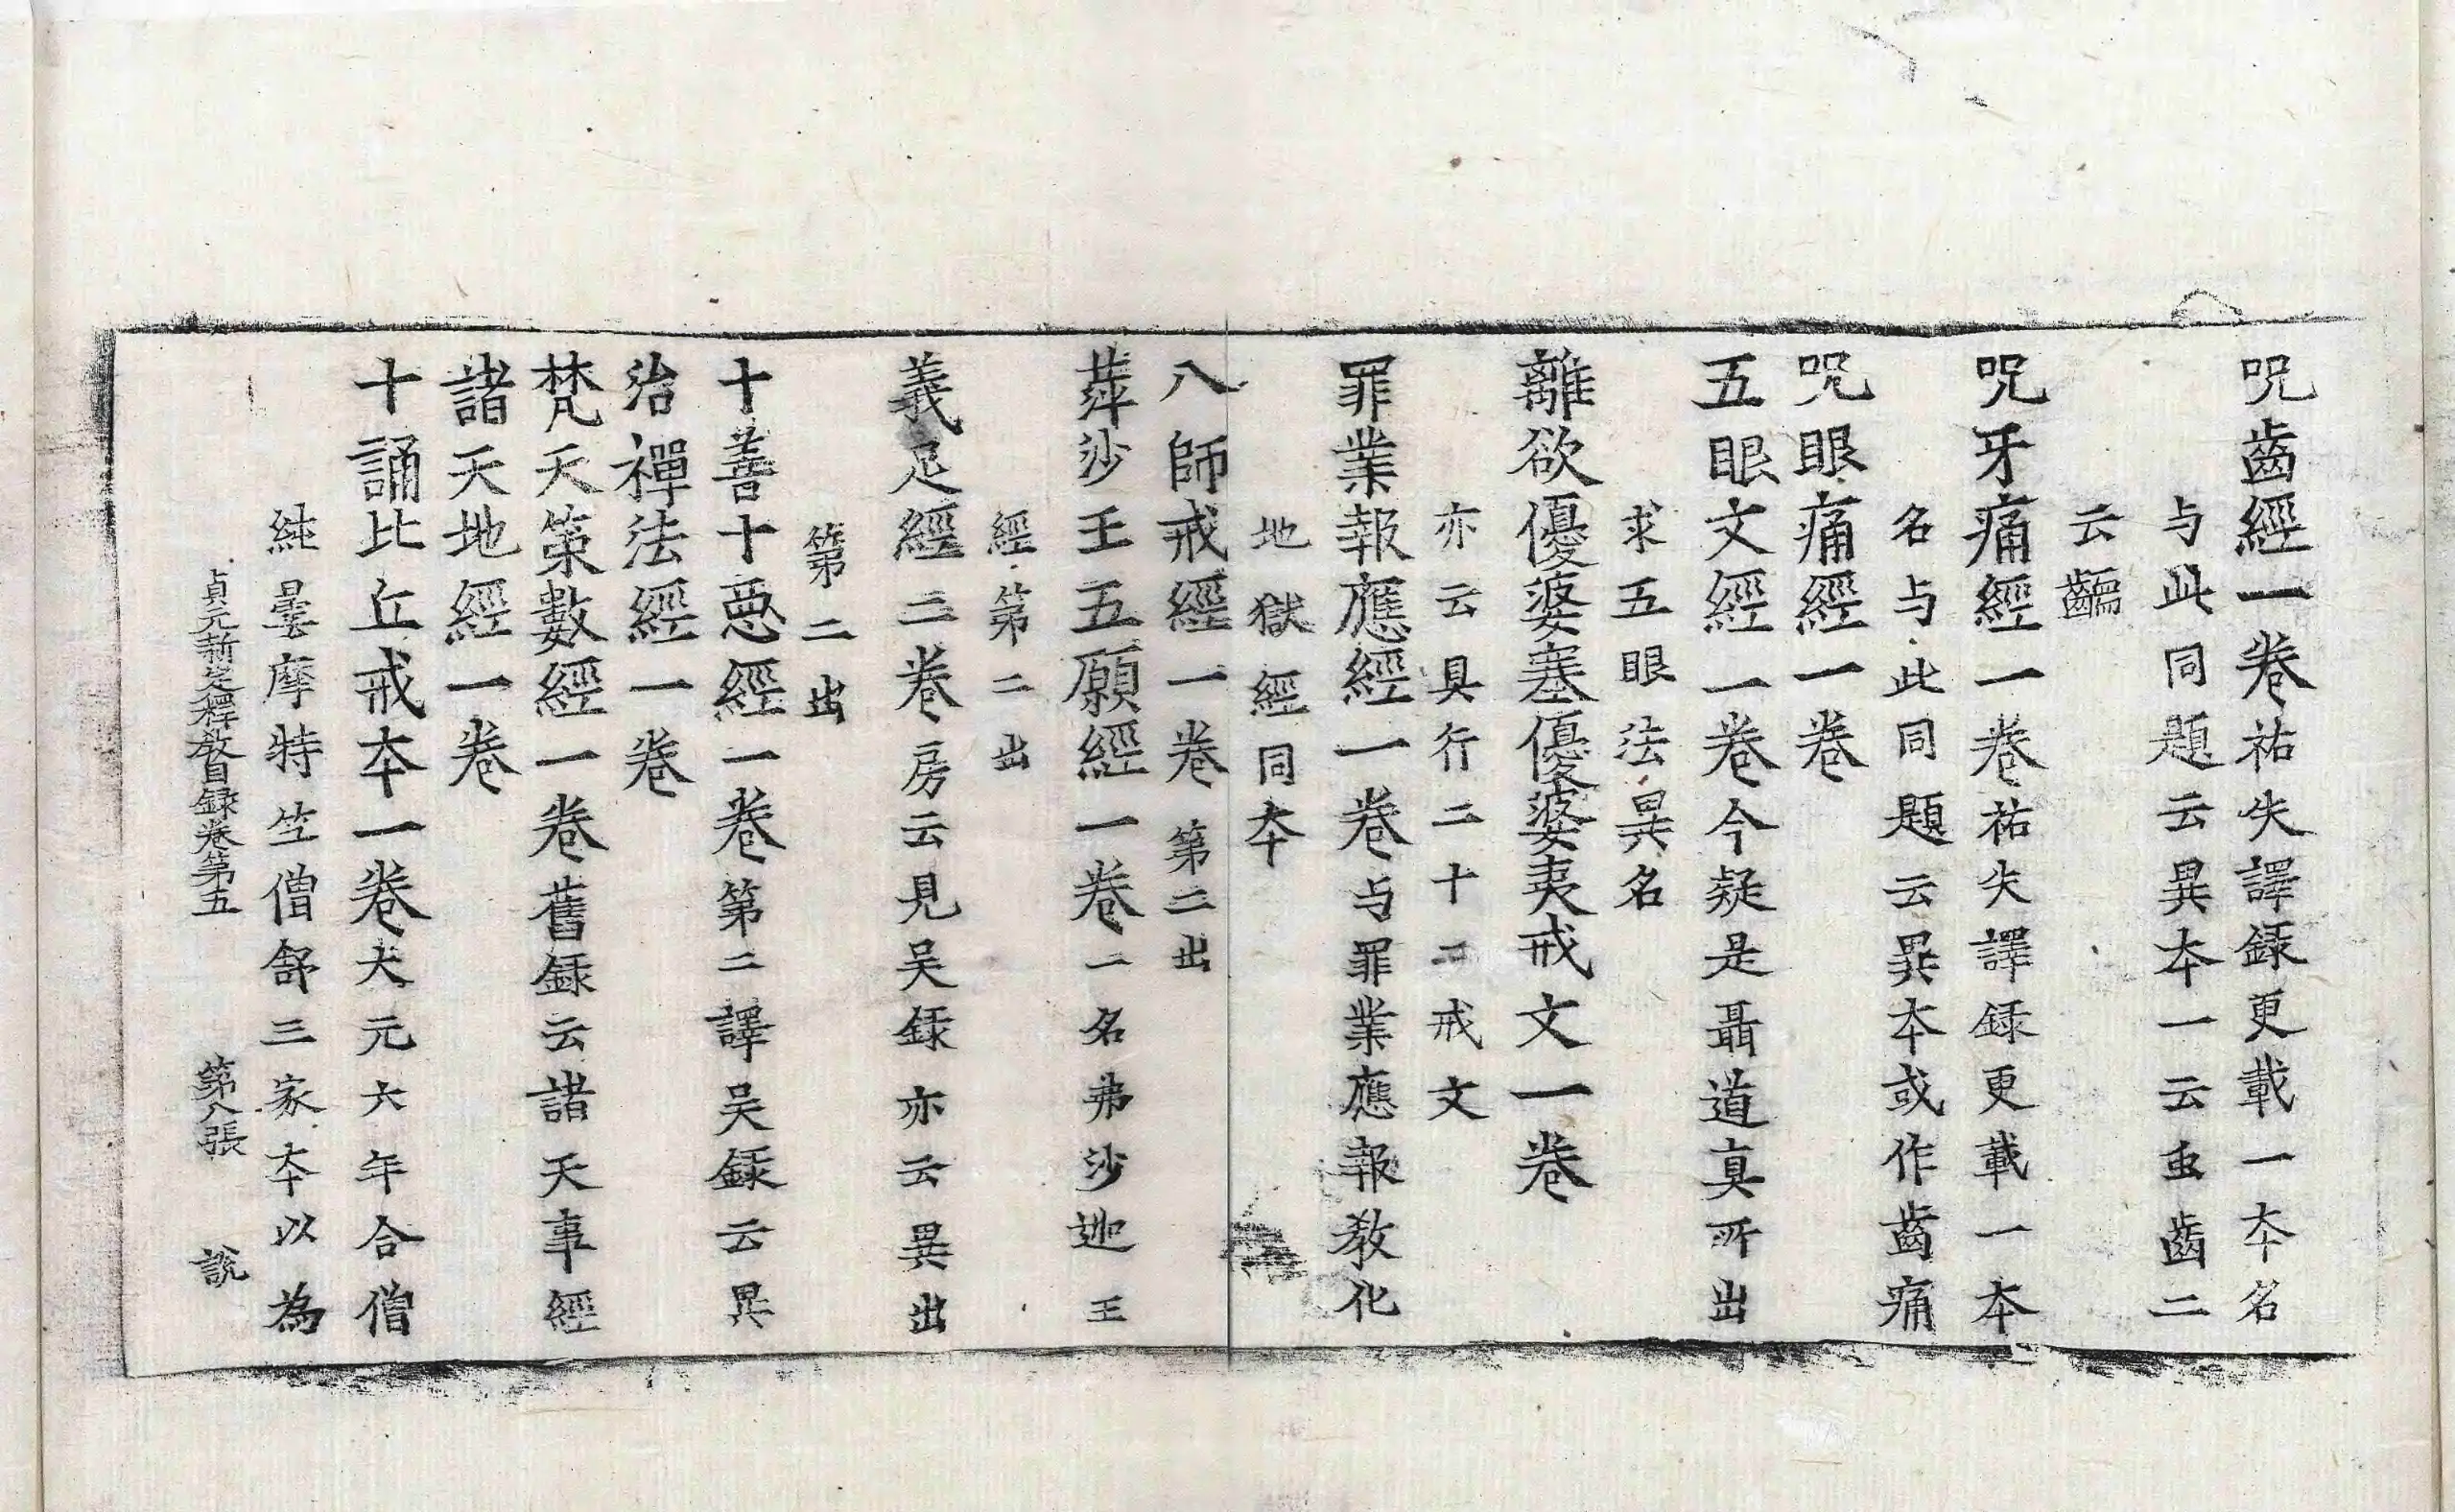 呪齒經一卷祐失譯録更載一夲名
与此同題云異夲一云虫齒二
云齲
呪牙痛經一卷祐失譯録更載一夲
名与此同題云異夲或作齒痛
呪眼痛經一卷
五眼文經一卷今疑是聶道真所出
求五眼法異名
離欲優婆塞優婆夷戒文一卷
亦云具行二十二戒文
罪業報應經一卷与罪業應報教化
地獄經同夲
八師戒經一卷第二出
蓱沙王五願經一卷一名弗沙迦王
經第二出
義足經二卷房云見吴録亦云異出
第二出
十善十惡經一卷第二譯吴録云異
治禪法經一卷
梵天策數經一卷舊録云諸天事經
諸天地經一卷
十誦比丘戒夲一卷太元六年合僧
純曇摩特竺僧舒三家夲以為
貞元新定釋教目録卷第五 第八張 說